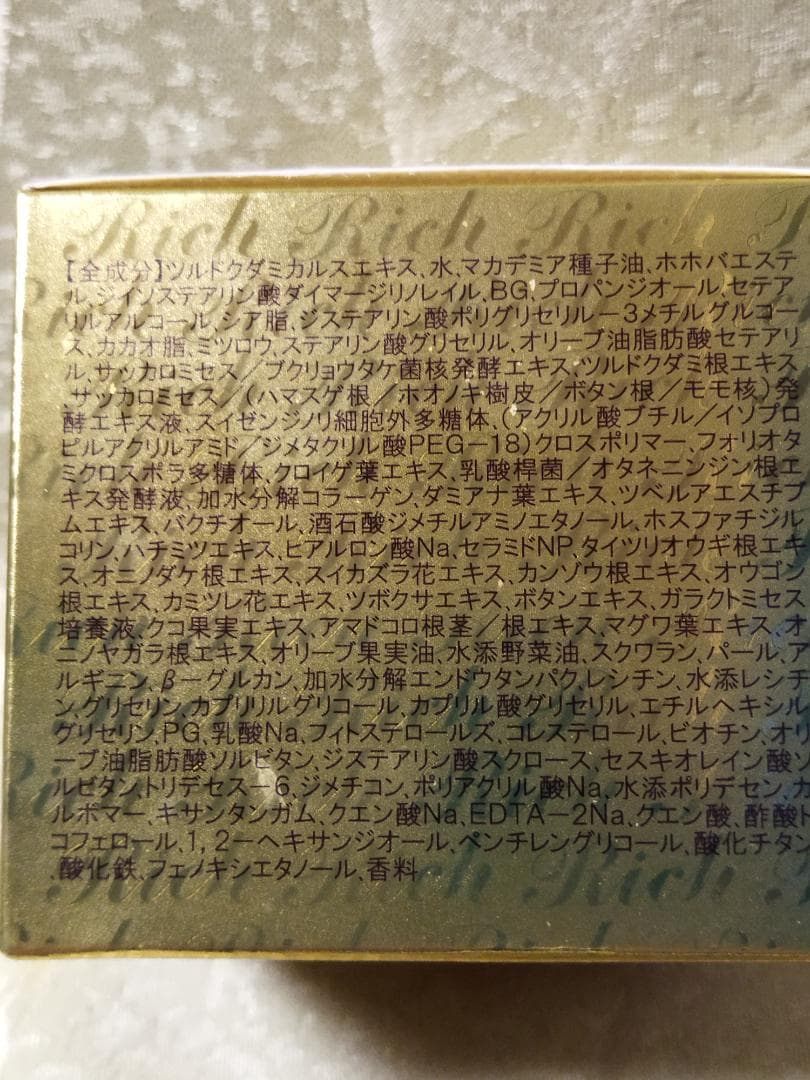 Rich Rich Rich
【全成分】ツルドクダミカルスエキス、水、マカデミア種子油、ホホバエステ
ル、ジイソステアリン酸ダイマージリノレイル、BG、プロパンジオール、セテア
リルアルコール、シア脂、ジステアリン酸ポリグリセリル－3メチルグルコー
ス、カカオ脂、ミツロウ、ステアリン酸グリセリル、オリーブ油脂肪酸セテアリ
ル、サッカロミセス／ブクリョウタケ菌核発酵エキス、ツルドクダミ根エキス
、サッカロミセス／（ハマスゲ根／ホオノキ樹皮／ボタン根／モモ核）発
酵エキス液、スイゼンジノリ細胞外多糖体、（アクリル酸ブチル／イソプロ
ピルアクリルアミド／ジメタクリル酸PEG－18）クロスポリマー、フォリオタ
ミクロスポラ多糖体、クロイゲ葉エキス、乳酸桿菌／オタネニンジン根エ
キス発酵液、加水分解コラーゲン、ダミアナ葉エキス、ツベルアエスチブ
ムエキス、バクチオール、酒石酸ジメチルアミノエタノール、ホスファチジル
コリン、ハチミツエキス、ヒアルロン酸Na、セラミドNP、タイツリオウギ根エキ
ス、オニノダケ根エキス、スイカズラ花エキス、カンゾウ根エキス、オウゴン
根エキス、カミツレ花エキス、ツボクサエキス、ボタンエキス、ガラクトミセス
培養液、クコ果実エキス、アマドコロ根茎／根エキス、マグワ葉エキス、オ
ニノヤガラ根エキス、オリーブ果実油、水添野菜油、スクワラン、パール、ア
ルギニン、β－グルカン、加水分解エンドウタンパク、レシチン、水添レシチ
ン、グリセリン、カプリリルグリコール、カプリル酸グリセリル、エチルヘキシル
グリセリン、PG、乳酸Na、フィトステロールズ、コレステロール、ビオチン、オリ
ーブ油脂肪酸ソルビタン、ジステアリン酸スクロース、セスキオレイン酸ソ
ルビタン、トリデセス－6、ジメチコン、ポリアクリル酸Na、水添ポリデセン、カ
ルボマー、キサンタンガム、クエン酸Na、EDTA－2Na、クエン酸、酢酸ト
コフェロール、1，2－ヘキサンジオール、ペンチレングリコール、酸化チタン
、酸化鉄、フェノキシエタノール、香料
Rich Rich